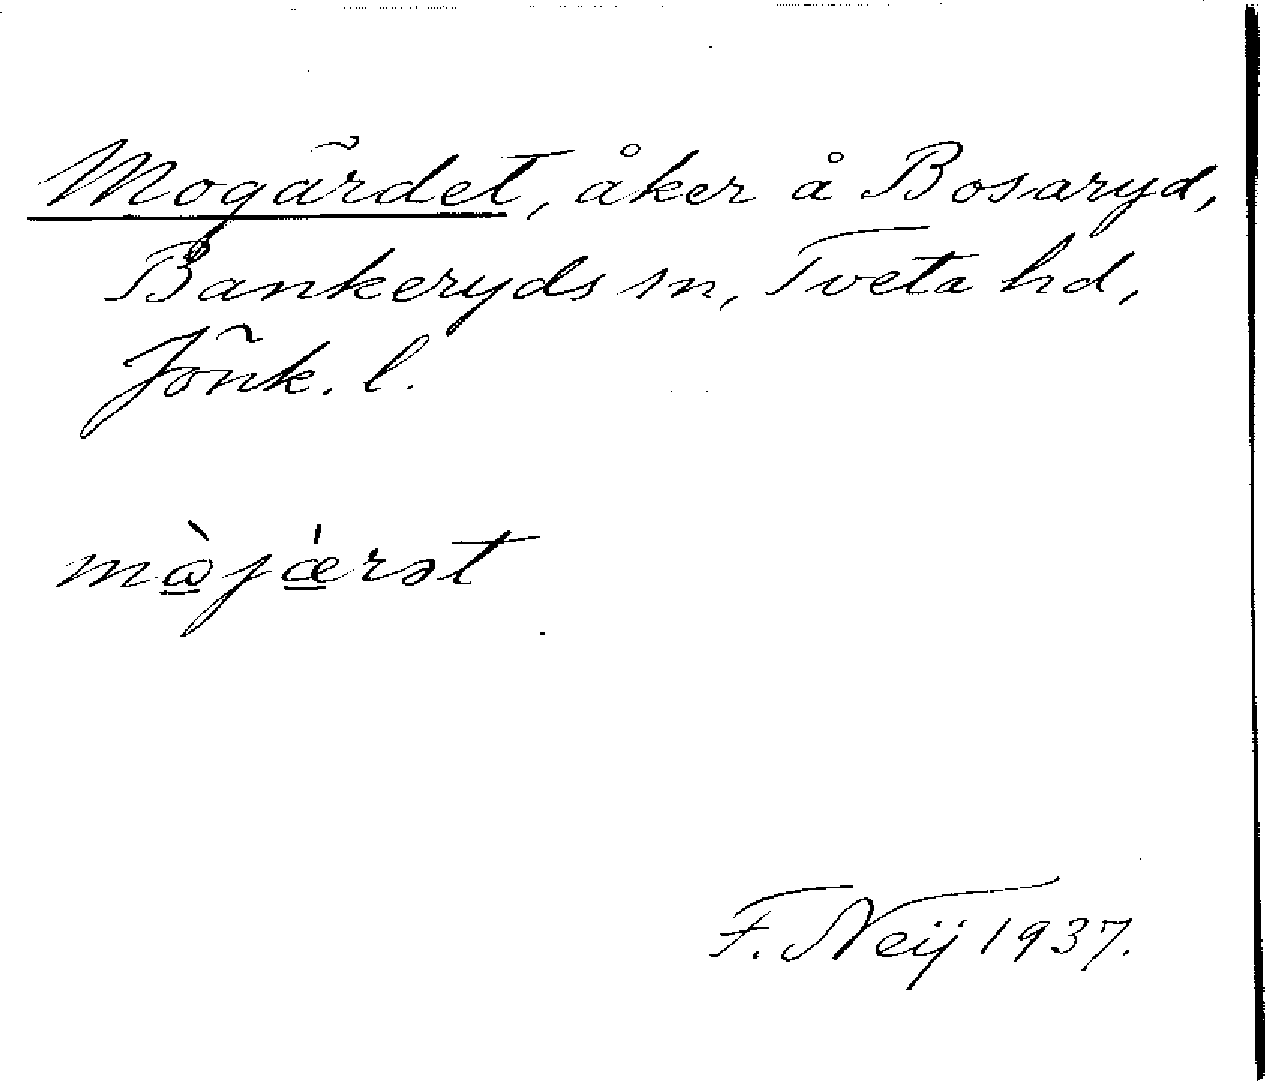 Mogärdet, åker å Bosaryd,
Bankeryds sn, Tveta hd,
Jönk. l.
mὼ̲jǽ̲rət
F. Neij 1937.